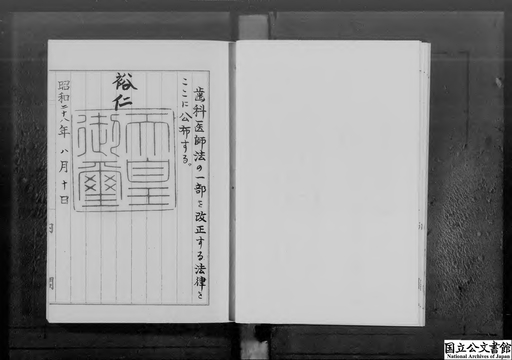 歯科医師法の一部を改正する法律を
ここに公布する。
裕仁
天皇
御璽
昭和二十八年八月十日
内閣
国立公文書館
National Archives of Japan